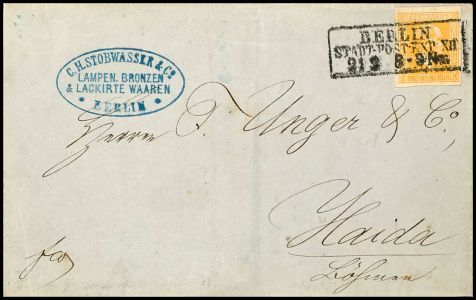 C.H. STOBWASSER & Co.
LAMPEN, BRONZEN
& LACKIRTE WAAREN
• BERLIN •
BERLIN
STADT-POST-EXP. XII
21 2 8-9 Nm.
Herren F. Unger & Co,
Haida
Böhmen
fco